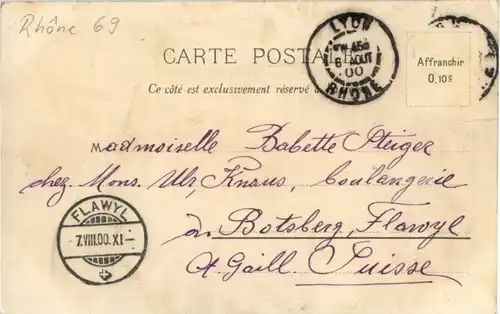 Rhône 69
LYON
6 AOUT
00
RHONE
CARTE POSTALE
Affranchir
0,10c
Ce côté est exclusivement réservé
Mademoiselle Babette Steiger
chez Mons. Ulr. Knaus, boulangerie
Botsberg, Flawyl
St. Gall. Suisse
FLAWYL
7.VIII.00.XI